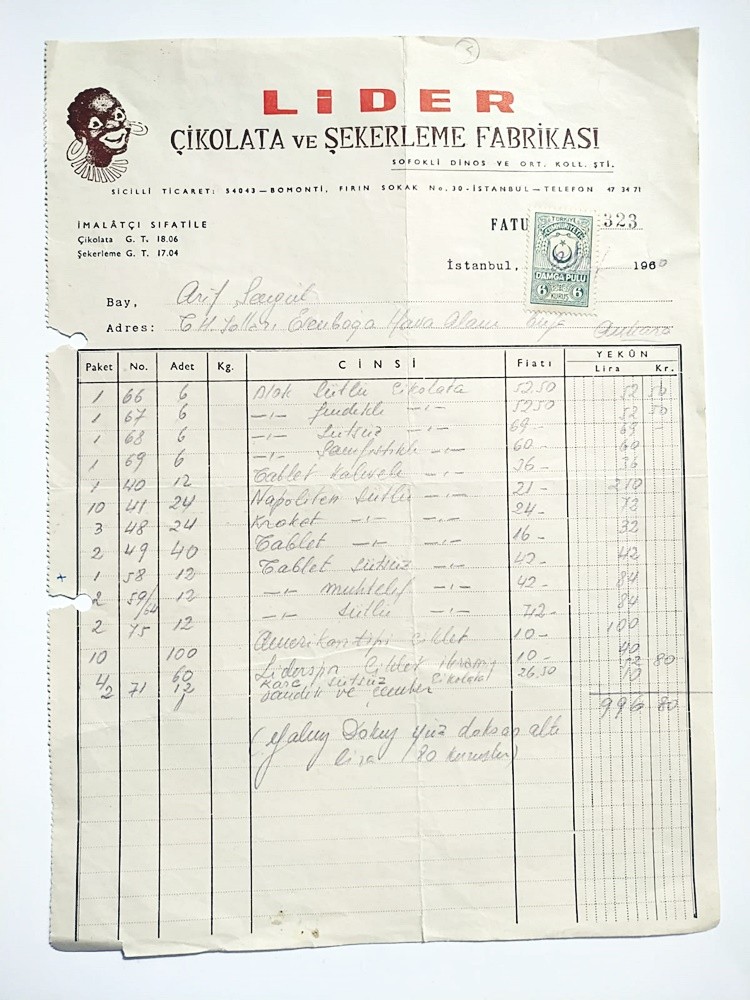 LİDER
ÇİKOLATA VE ŞEKERLEME FABRİKASI
SOFOKLİ DİNOS VE ORT. KOLL. ŞTİ.
SİCİLLİ TİCARET: 54043—BOMONTİ, FIRIN SOKAK No. 30-İSTANBUL—TELEFON 47 34 71
İMALÂTÇI SIFATİLE
Çikolata G. T. 18.06
Şekerleme G. T. 17.04
FATU 323
TÜRKİYE
CUMHURİYETİ
DAMGA PULU
6 KURUŞ 6
İstanbul, 1960
Bay, Arif
Adres: Hava Alanı Ankara
Paket No. Adet Kg. CİNSİ Fiatı YEKÛN
Lira Kr.
1 66 6 Blok Sütlü Çikolata 52 50 52 50
1 67 6 -"- fındıklı -"- 52 50 52 50
1 68 6 -"- Sütsüz -"- 69- 69 -
1 69 6 -"- Şamfıstıklı -"- 60- 60
1 40 12 Tablet Kahveli -"- 36- 36
10 41 24 Napoliten Sütlü -"- 21- 210
3 48 24 Kroket -"- -"- 24- 72
2 49 40 Tablet -"- -"- 16- 32
1 58 12 Tablet Sütsüz -"- 42- 42
2 59/64 12 -"- muhtelif -"- 42- 84
2 75 12 -"- Sütlü -"- 42- 84
10 100 Amerikan tipi Ciklet 10- 100
4 60 Ciklet 10- 40
2 71 12 Sütsüz Çikolata 26.50 52 80
sandık ve çember 10
996 80
(Yalnız Dokuz yüz doksan altı
lira (80 kuruştur)